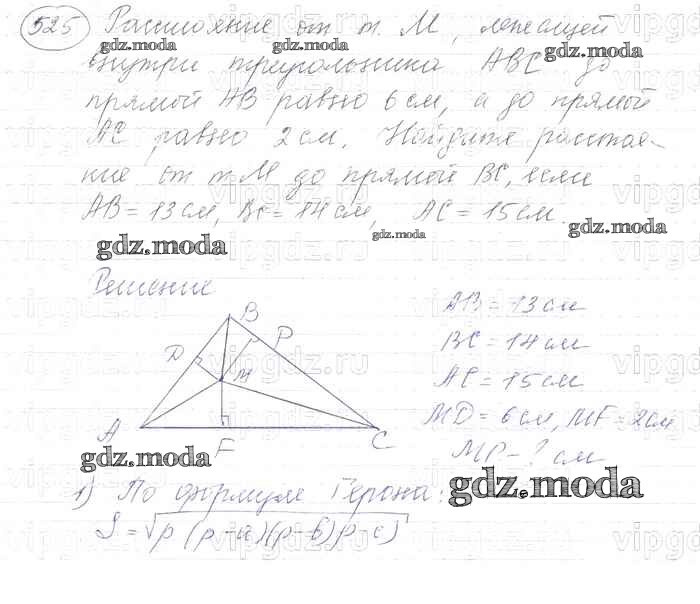 525 Расстояние от т. М, лежащей
внутри треугольника ABC до
прямой AB равно 6 см, а до прямой
AC равно 2 см. Найдите расстоя-
ние от т. М до прямой BC, если
AB = 13 см, BC = 14 см, AC = 15 см.
gdz.moda
gdz.moda
gdz.moda
gdz.moda
gdz.moda
gdz.moda
Решение
AB = 13 см
BC = 14 см
AC = 15 см
MD = 6 см, MF = 2 см
MP - ? см
B
P
D
M
A
F
C
gdz.moda
gdz.moda
1) По формуле Герона:
S = √p(p-a)(p-b)p-c)
vipgdz.ru